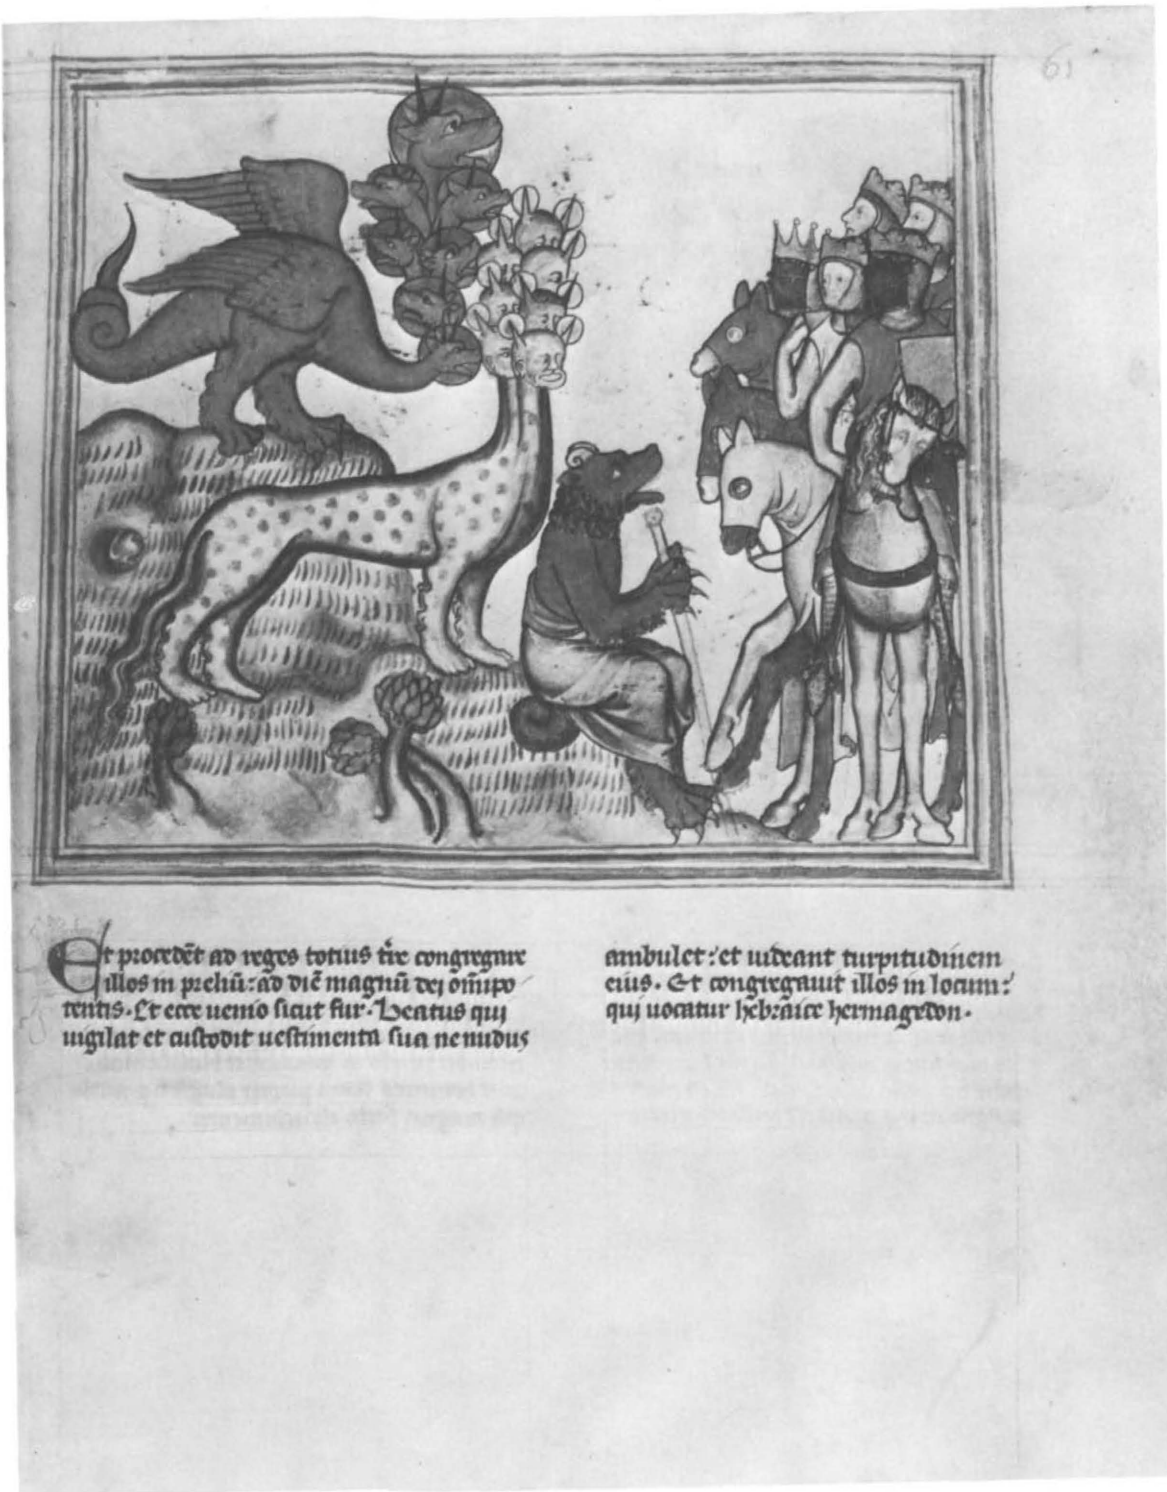 61
Et procedēt ad reges totius t̄re congregare
illos in preliū: ad diē magnū dei om̄ipo
tentis. Et ecce uenio sicut fur. Beatus qui
uigilat et custodit uestimenta sua ne nudus
ambulet: et uideant turpitudinem
eius. Et congregauit illos in locum:
qui uocatur hebraice hermagedon.